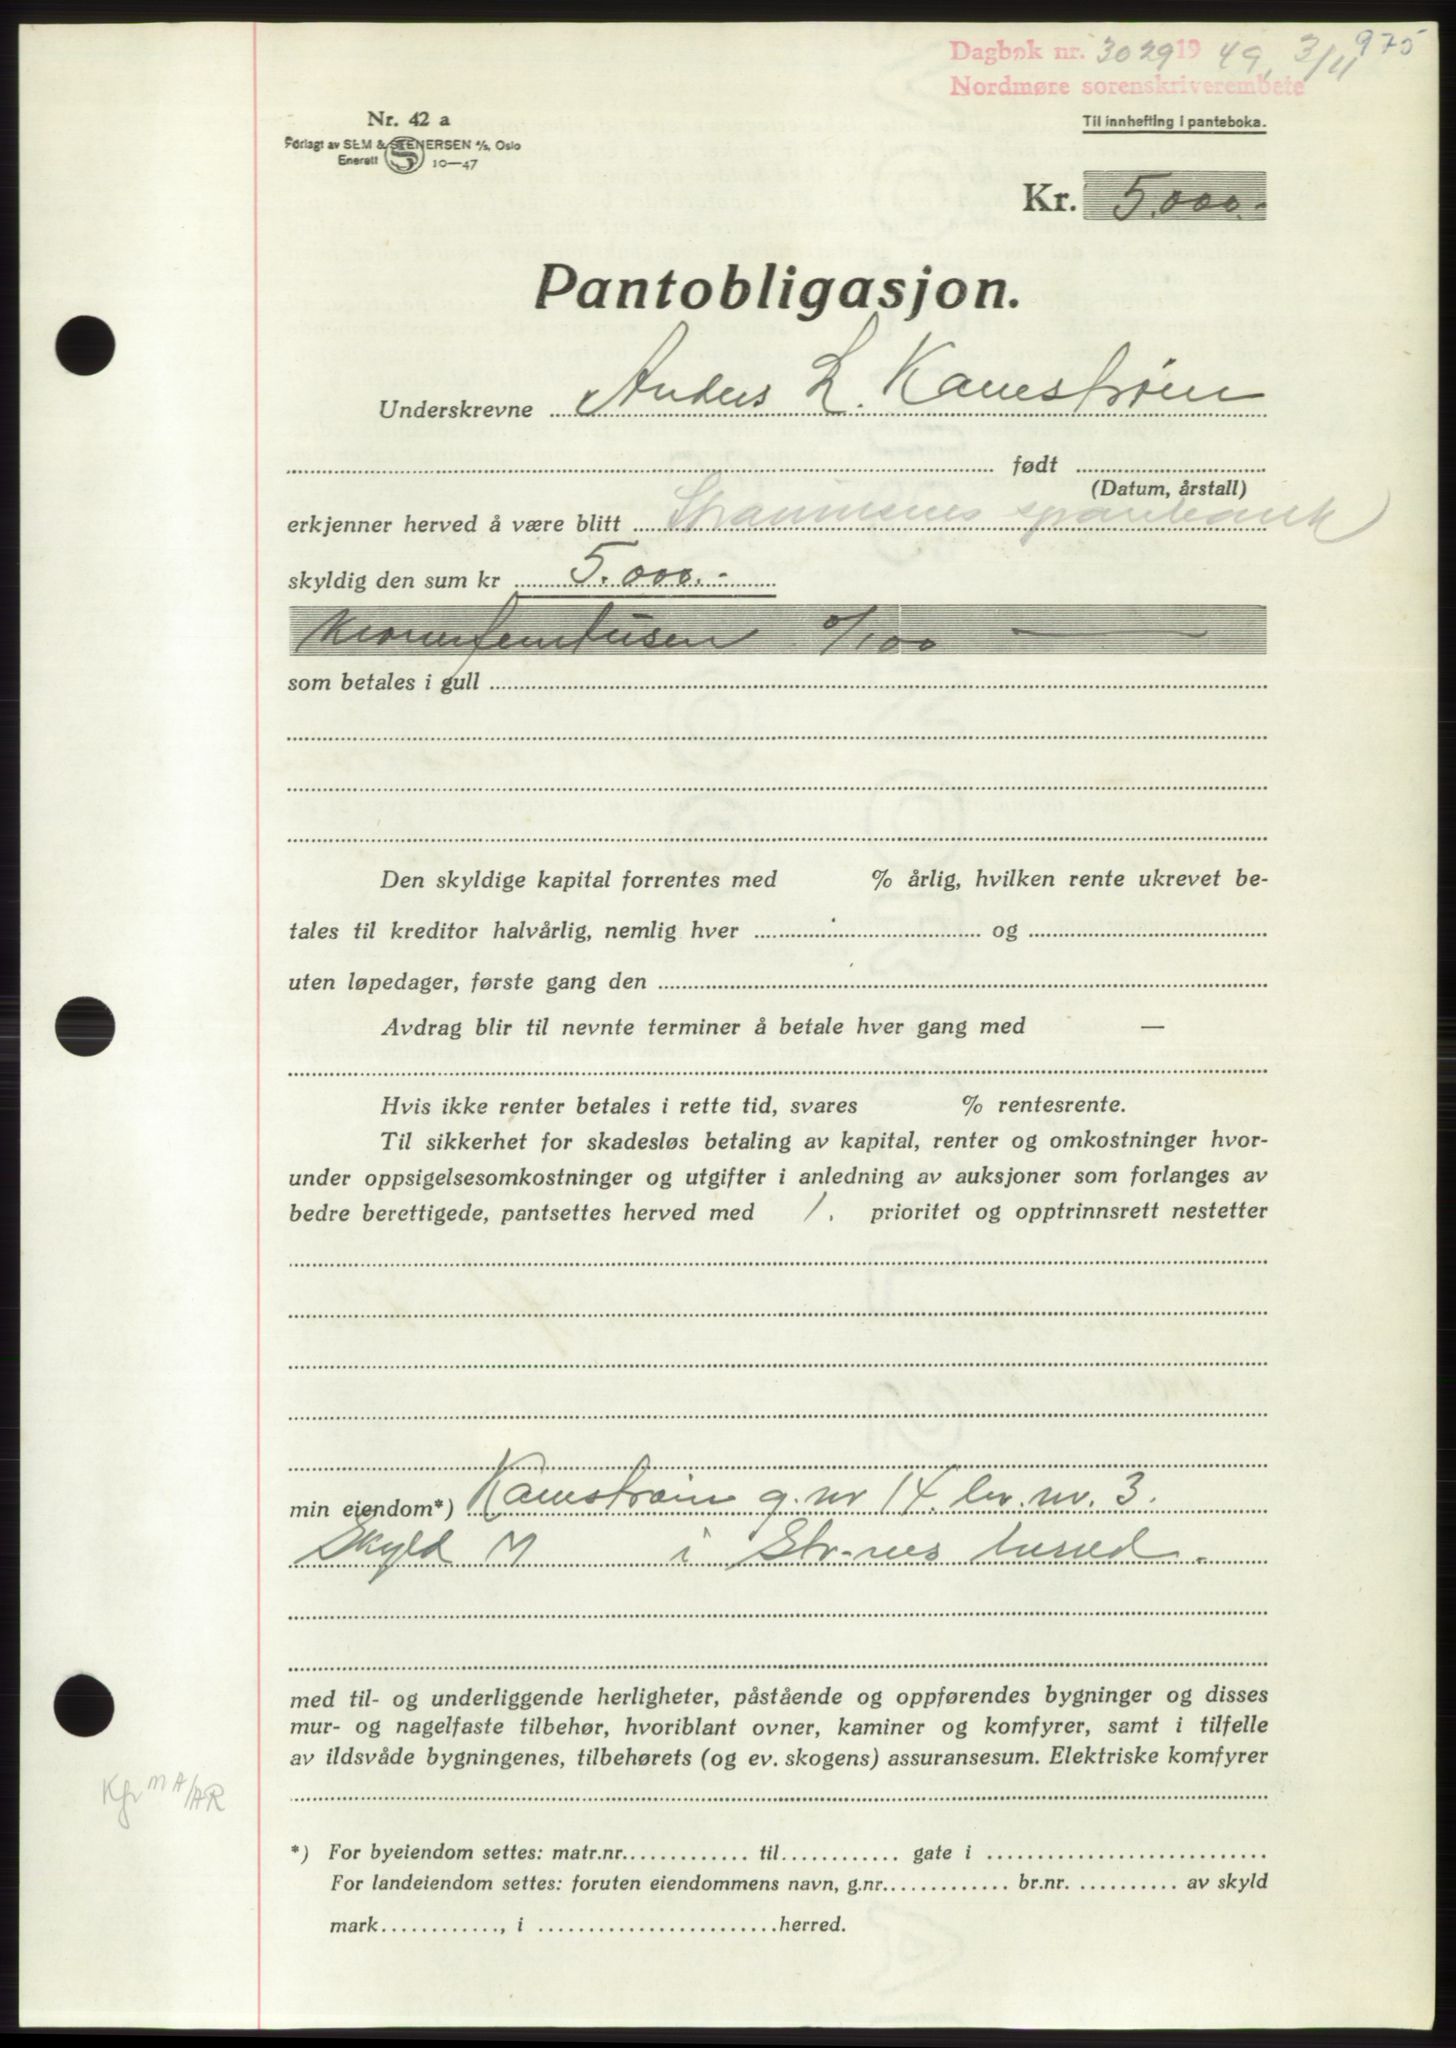 975
Dagbok nr. 3029 1949, 3/11
Nordmøre sorenskriverembete
Nr. 42 a
Til innhefting i panteboka.
Forlagt av SEM & STENERSEN A/S, Oslo
Enerett S 10—47
Kr. 5.000.-
Pantobligasjon.
Underskrevne Anders L. Kamstrøm
født
(Datum, årstall)
erkjenner herved å være blitt Straumsnes sparebank
skyldig den sum kr 5.000.-
Kronerfemtusen 0/100 —
som betales i gull
Den skyldige kapital forrentes med % årlig, hvilken rente ukrevet be-
tales til kreditor halvårlig, nemlig hver og
uten løpedager, første gang den
Avdrag blir til nevnte terminer å betale hver gang med —
Hvis ikke renter betales i rette tid, svares % rentesrente.
Til sikkerhet for skadesløs betaling av kapital, renter og omkostninger hvor-
under oppsigelsesomkostninger og utgifter i anledning av auksjoner som forlanges av
bedre berettigede, pantsettes herved med 1. prioritet og opptrinnsrett nestetter
min eiendom*) Kamstrøm g.nr 14. br.nr. 3.
Skyld M i Str-nes herred.
med til- og underliggende herligheter, påstående og oppførendes bygninger og disses
mur- og nagelfaste tilbehør, hvoriblant ovner, kaminer og komfyrer, samt i tilfelle
av ildsvåde bygningenes, tilbehørets (og ev. skogens) assuransesum. Elektriske komfyrer
Kfr MA/AR
*) For byeiendom settes: matr.nr. til gate i
For landeiendom settes: foruten eiendommens navn, g.nr. br.nr. av skyld
mark , i herred.